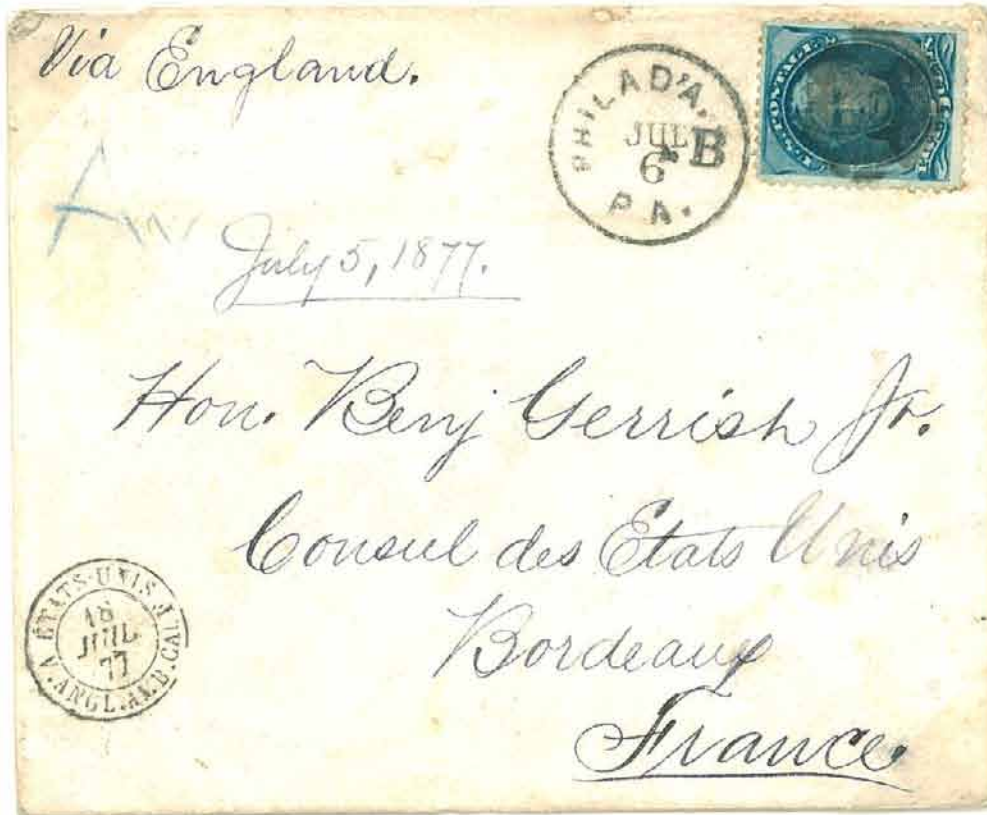 Via England.
PHILAD'A.
JUL
6 B
PA.
July 5, 1877.
Hon. Benj Gerrish Jr.
Consul des Etats Unis
Bordeaux
France
ETATS-UNIS
18
JUIL
77
A. ANGL. AMB. CAL. J